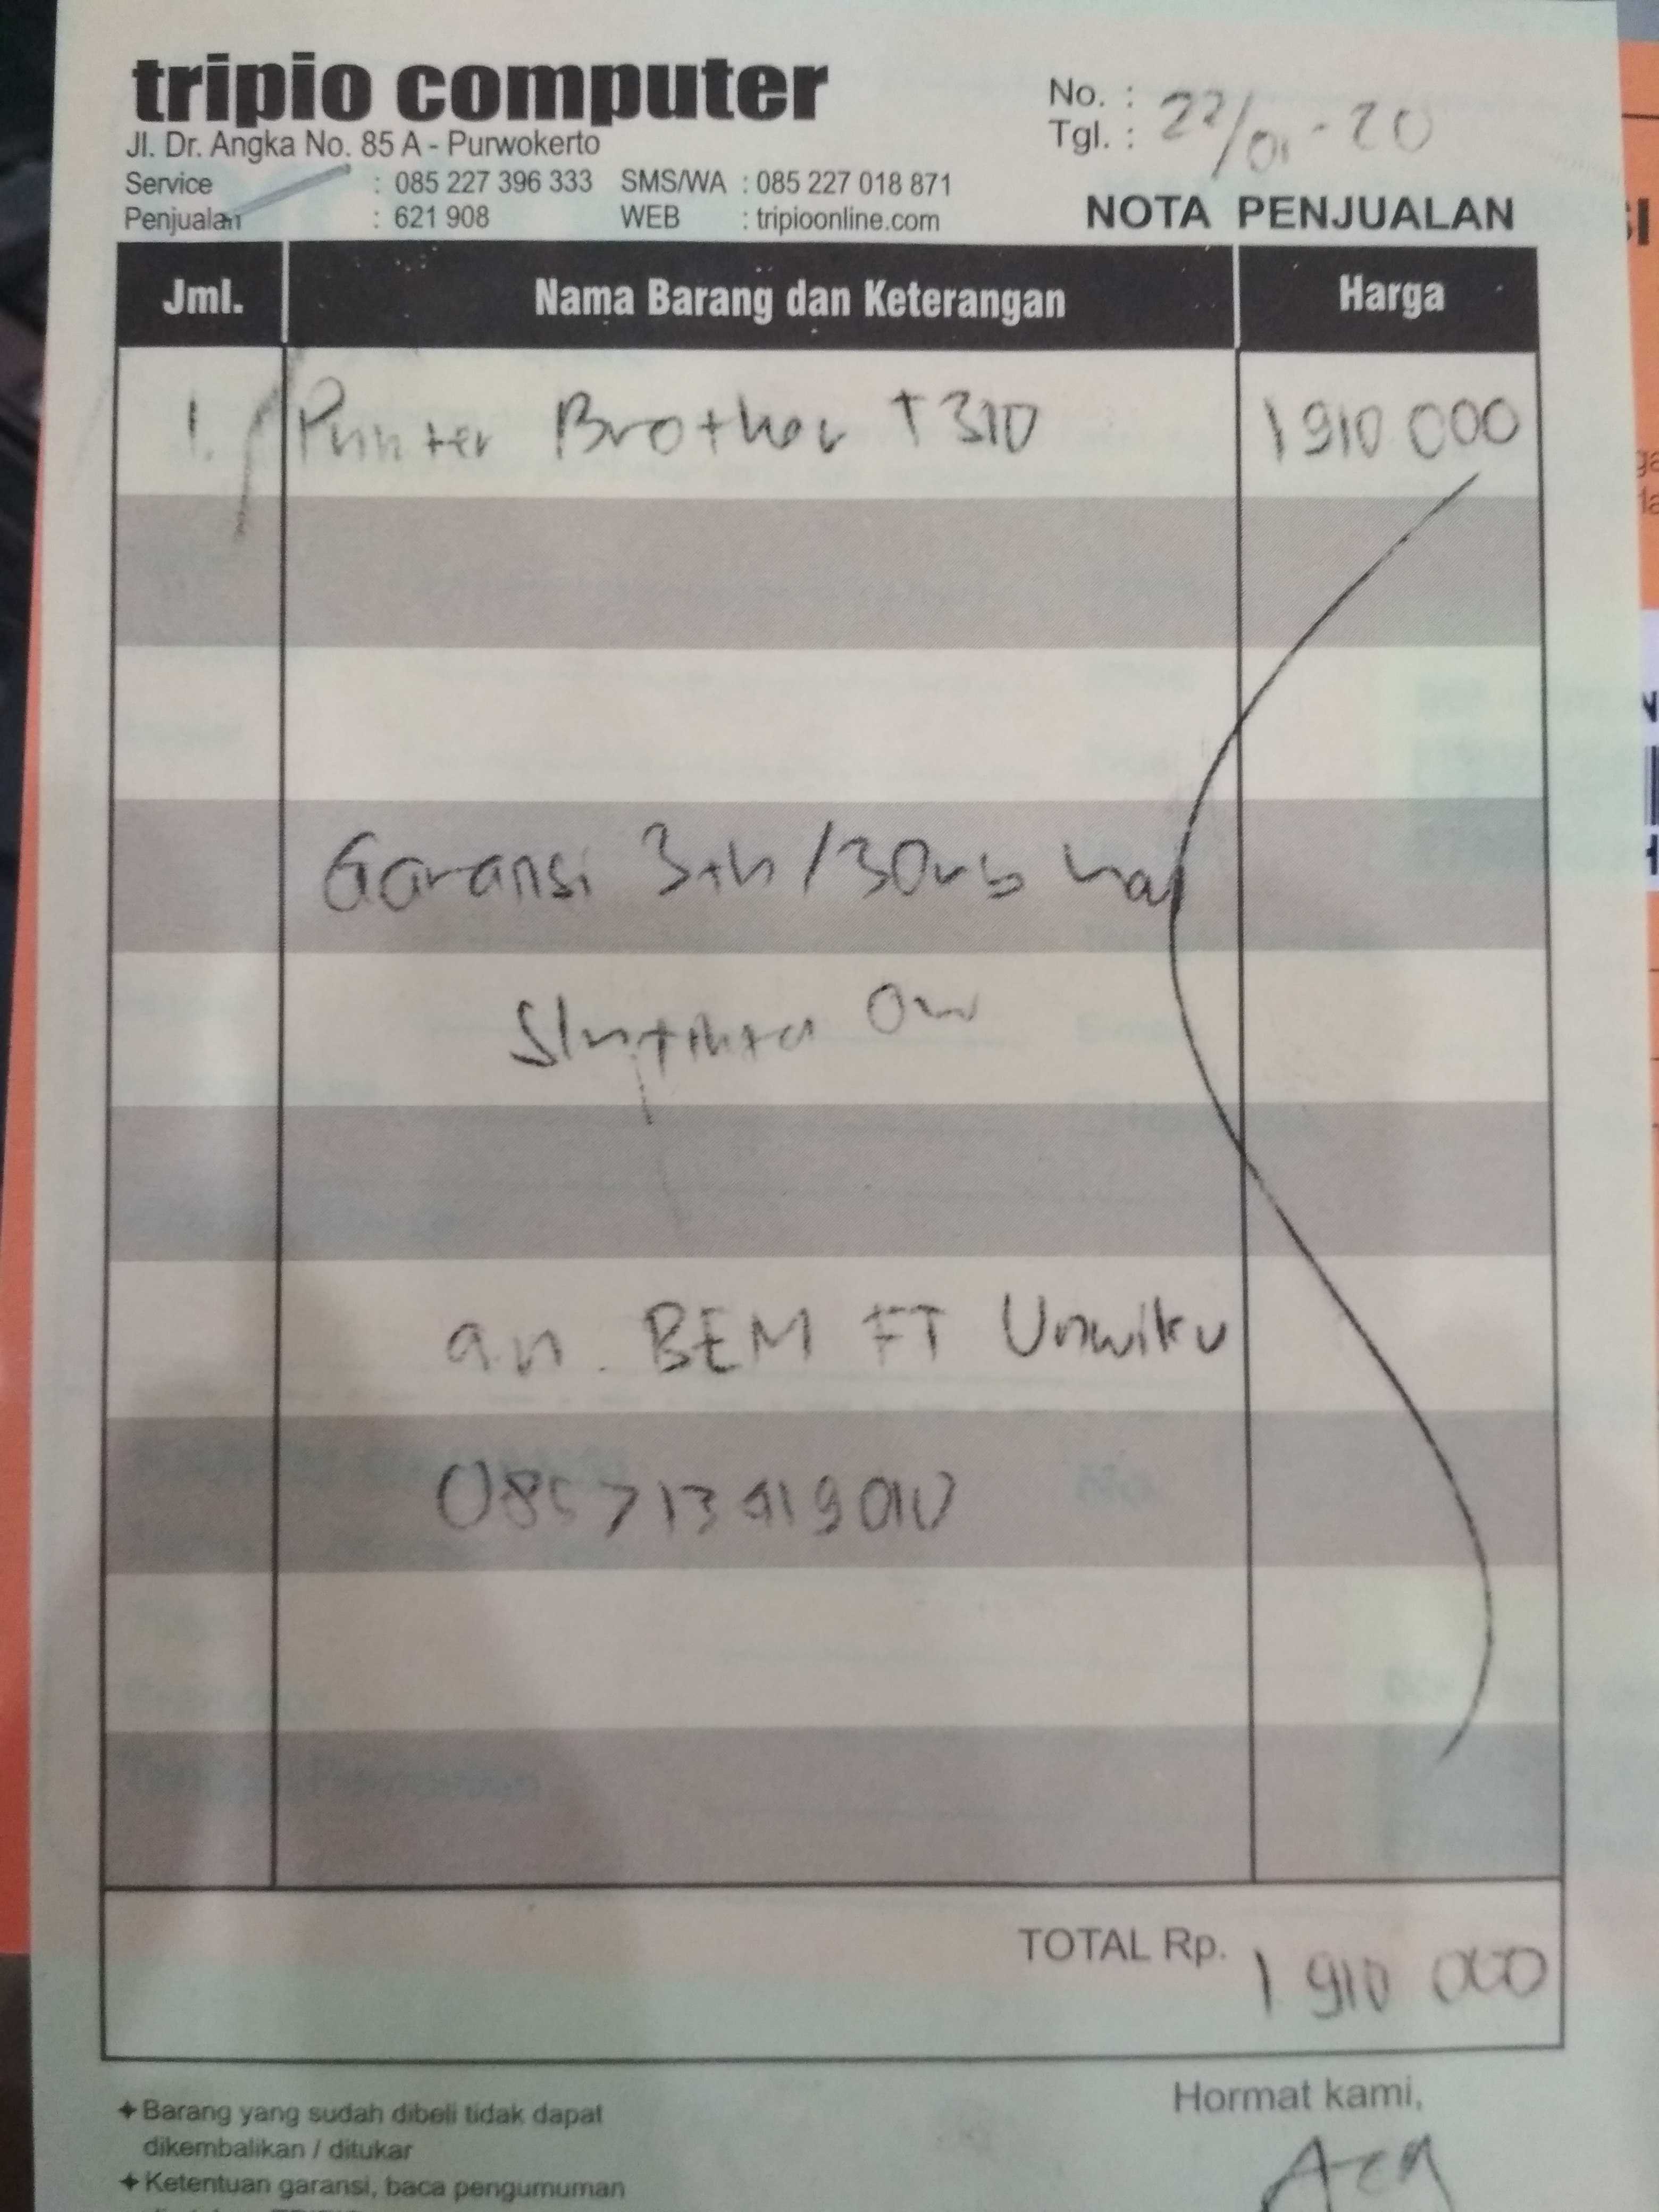 tripio computer
Jl. Dr. Angka No. 85 A - Purwokerto
Service : 085 227 396 333 SMS/WA : 085 227 018 871
Penjualan : 621 908 WEB : tripioonline.com
No. :
Tgl. : 22/01-20
NOTA PENJUALAN
Jml. Nama Barang dan Keterangan Harga
1. Printer Brother T310 1 910 000
Garansi 3th/30rb hal
an. BEM FT Unwiku
TOTAL Rp. 1 910 000
Hormat kami,
✦ Barang yang sudah dibeli tidak dapat
dikembalikan / ditukar
✦ Ketentuan garansi, baca pengumuman